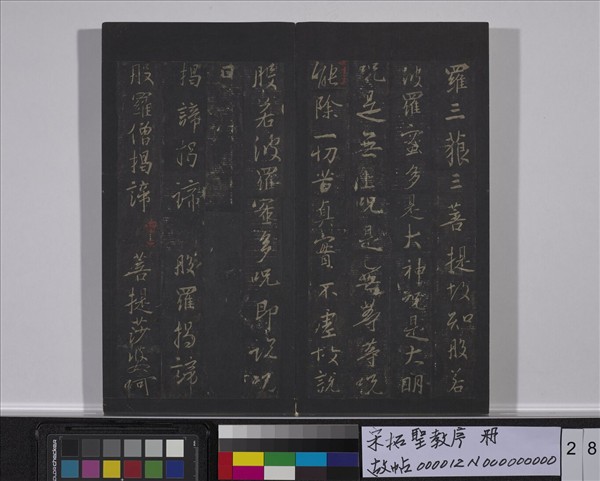 羅三藐三菩提故知般若
波羅蜜多是大神咒是大明
咒是無上咒是無等等咒
能除一切苦真實不虛故說
般若波羅蜜多咒即說咒
曰
揭諦揭諦 般羅揭諦
般羅僧揭諦 菩提莎婆呵
宋拓聖教序 冊
故帖000012N000000000
28